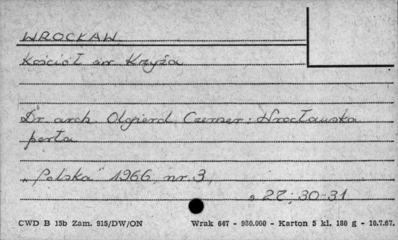 WROCŁAW
Kościół św. Krzyża
Dr. arch. Olgierd Czerner: Wrocławska
perła
„Polska” 1966, nr. 3,
s. 27; 30-31
CWD B 15b Zam. 915/DW/ON Wrak 667 - 980.000 - Karton 5 kl. 180 g - 10.7.67.